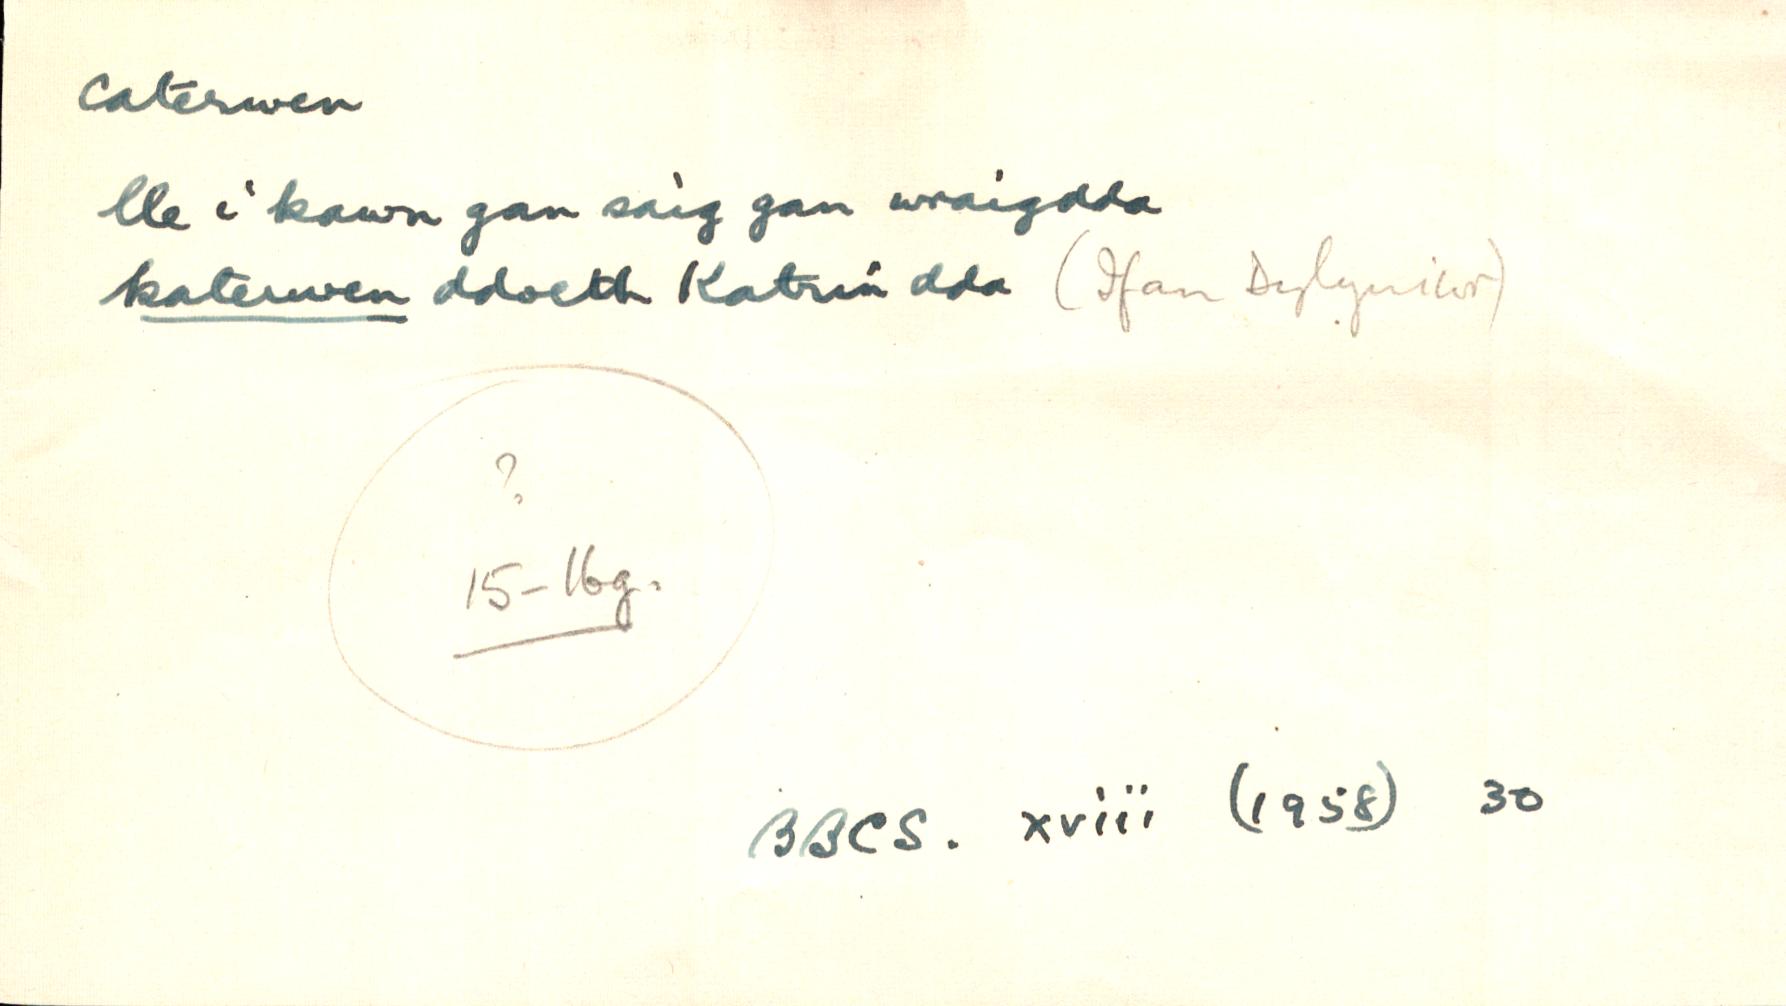 caterwen
lle i kawn gan saig gan wraigdda
katerwen ddoeth Katrin dda (Ifan Dylyniwr)
?
15-16g.
BBCS. xviii (1958) 30